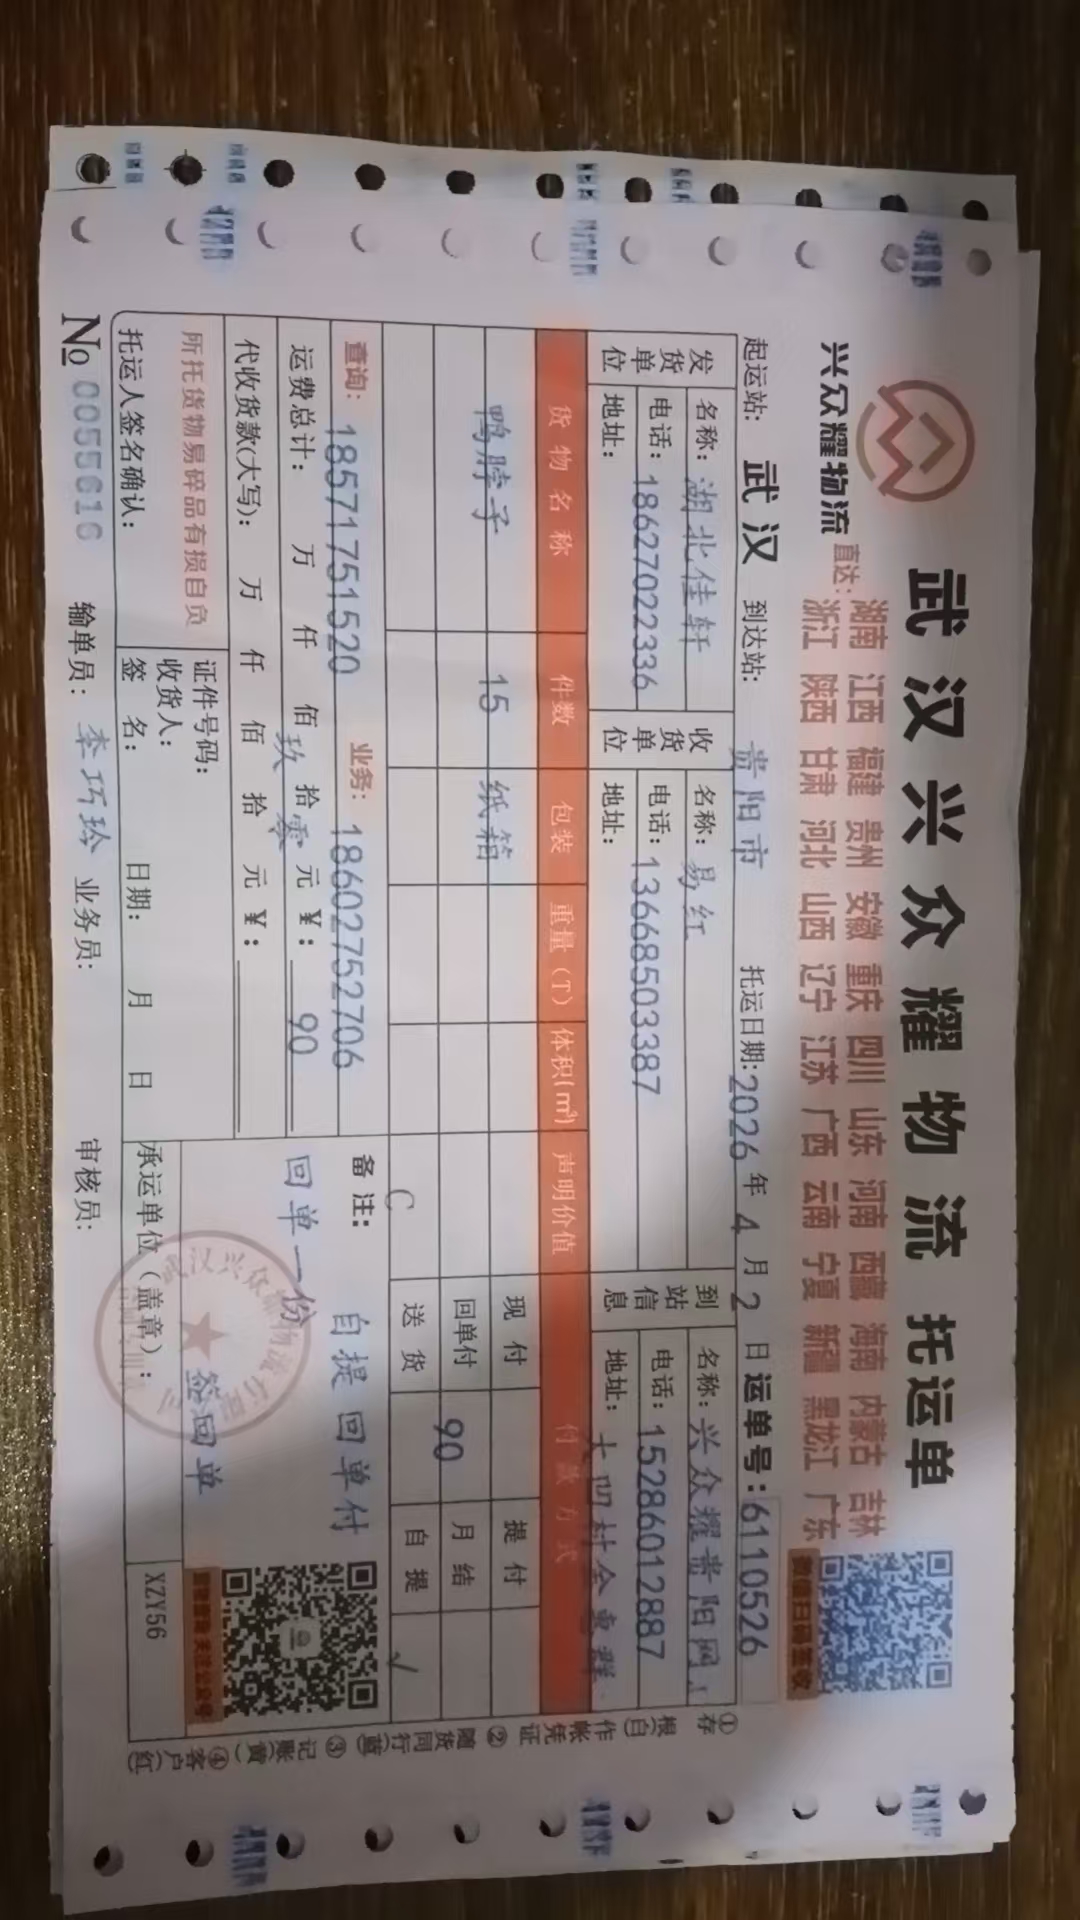 武汉兴众耀物流 托运单
兴众耀物流
直达:
湖南 江西 福建 贵州 安徽 重庆 四川 山东 河南 西藏 海南 内蒙古 吉林
浙江 陕西 甘肃 河北 山西 辽宁 江苏 广西 云南 宁夏 新疆 黑龙江 广东
微信扫描签收
起运站: 武汉 到达站: 贵阳市 托运日期: 2026 年 4 月 2 日 运单号: 6110526
发货单位 名称: 湖北佳轩 收货单位 名称: 易红 到站信息 名称: 兴众耀贵阳网
电话: 18627022336 电话: 13668503387 电话: 15286012887
地址: 地址: 地址: 大凹村
货物名称 件数 包装 重量(T) 体积(m³) 声明价值 付款方式
鸭脖子 15 纸箱 现付 提付
回单付 90 月结
C 送货 自提 √
查询: 18571751520 业务: 18602752706 备注: 自提 回单付
运费总计: 万 仟 佰 玖 拾 零 元 ¥: 90 回单一份
代收货款(大写): 万 仟 佰 拾 元 ¥:
所托货物易碎品有损自负 证件号码: 签回单
收货人:
托运人签名确认: 签 名: 日期: 月 日 承运单位(盖章): XZY56
No 0055616 输单员: 李巧玲 业务员: 审核员:
①存根(白)作帐凭证 ②随货同行(蓝) ③记账(黄) ④客户(红)